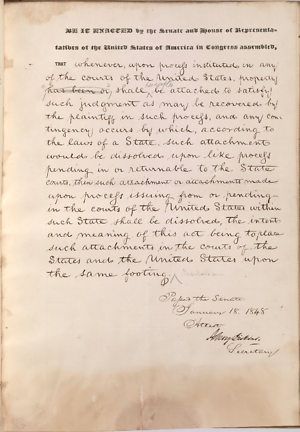 BE IT ENACTED by the Senate and House of Representa-
tatives of the United States of America in Congress assembled,
THAT whenever, upon process instituted in any
of the courts of the United States, property
has been or, shall, be attached to satisfy
such judgment as may be recovered by
the plaintiff in such process, and any con-
tingency occurs by which, according to
the laws of a State, such attachment
would be dissolved upon like process
pending in or returnable to the State
courts, then such attachment or attachments made
upon process issuing from or pending
in the courts of the United States within
such State shall be dissolved, the intent
and meaning of this act being to place
such attachments in the courts of the
States and the United States upon
the same footing.
Passed the Senate
January 18. 1848
Attest
Secretary